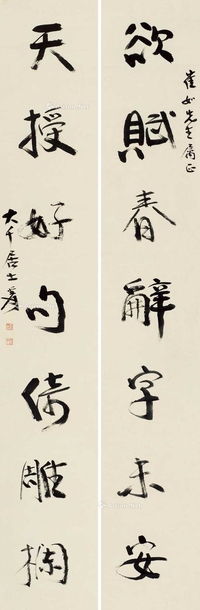 崔如先生屬正
欲賦春辭字未安
天授好句倚雕欄
大千居士爰